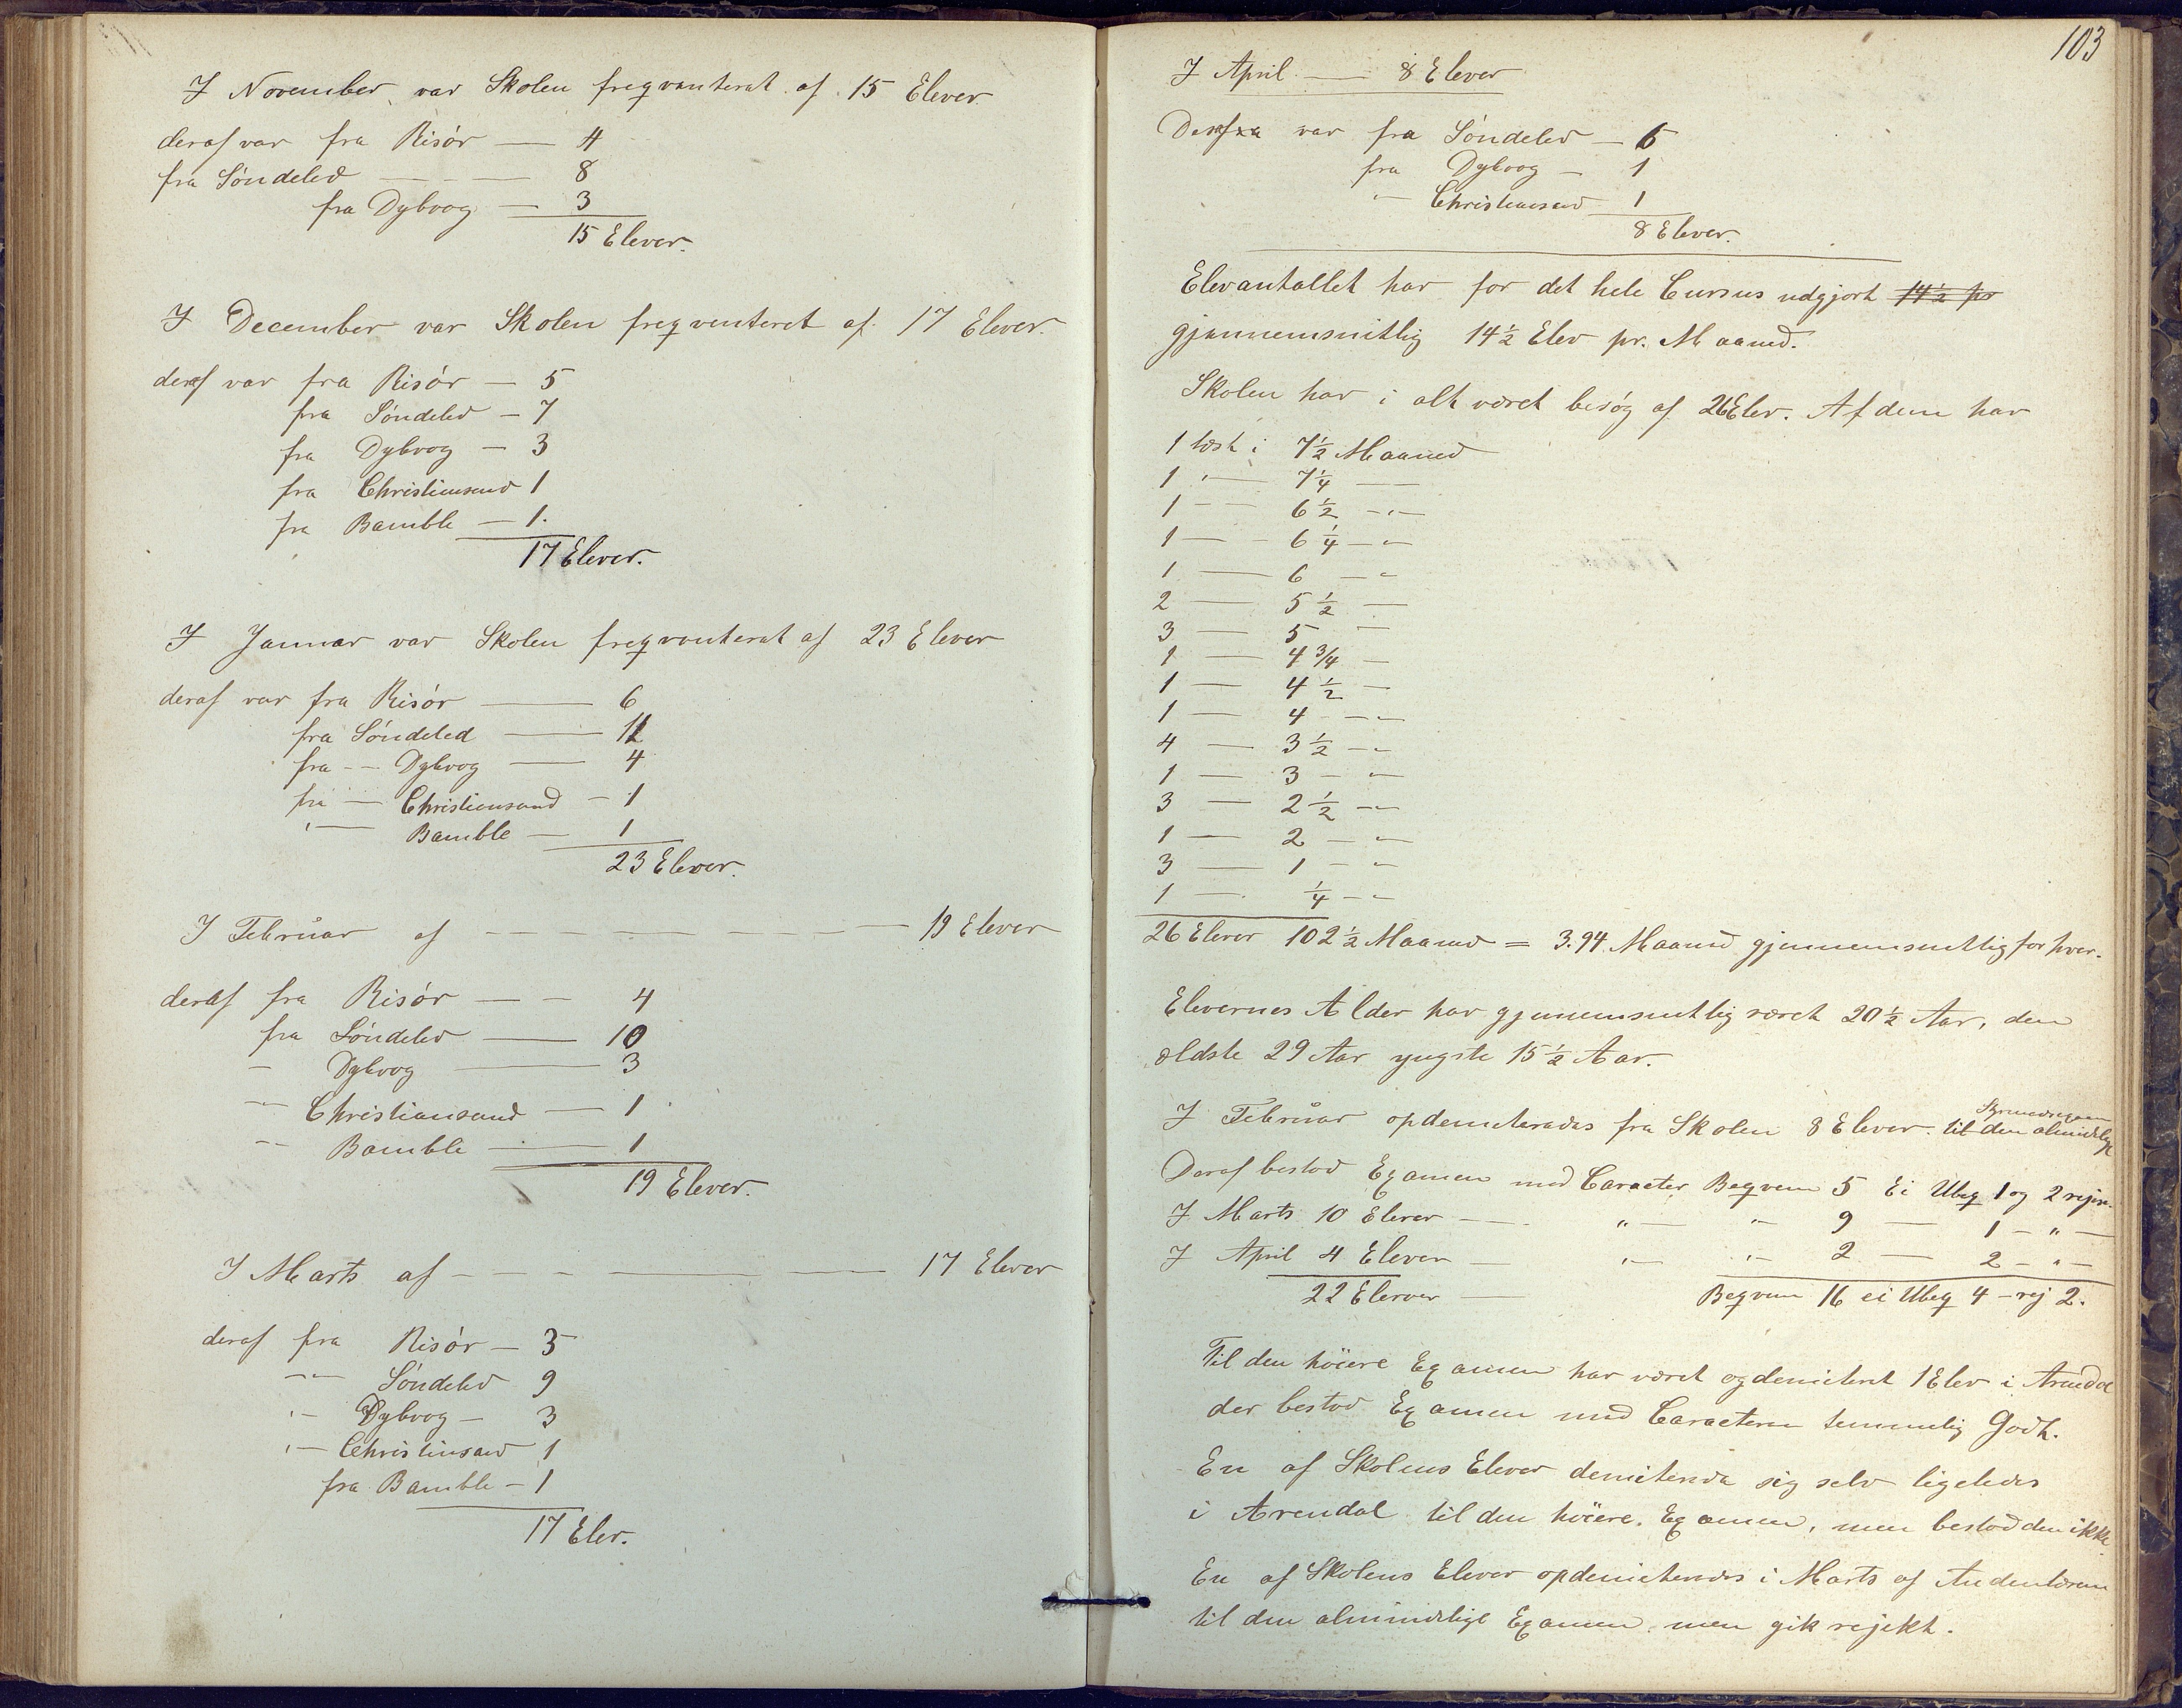 I November var Skolen freqventeret af 15 Elever
deraf var fra Risør — 4
fra Søndeled — — — 8
fra Dybvog — 3
15 Elever.
I December var Skolen freqventeret af 17 Elever.
deraf var fra Risør — 5
fra Søndeled — 7
fra Dybvog — 3
fra Christiansand 1
fra Bamble — 1.
17 Elever.
I Januar var Skolen freqventeret af 23 Elever
deraf var fra Risør — 6
fra Søndeled — 11
fra — Dybvog — 4
fra — Christiansand — 1
"— Bamble — 1
23 Elever.
I Februar af — — — — — — 19 Elever
deraf fra Risør — — 4
fra Søndeled — 10
— Dybvog — 3
"— Christiansand — 1
"— Bamble — 1
19 Elever.
I Marts af — — — — — — 17 Elever
deraf fra Risør — 3
"— Søndeled 9
"— Dybvog — 3
"— Christinsand 1
fra Bamble — 1
17 Elev.
103
I April — 8 Elever
Deraf var fra Søndeled — 6
fra Dybvog — 1
"— Christiansand 1
8 Elever.
Elevantallet har for det hele Cursus udgjort 14½ pr
gjennemsnitlig 14½ Elev pr. Maaned.
Skolen har i alt været besøg af 26 Elev. Af dem har
1 læst i 7½ Maaned
1 "— 7¼ —
1 — 6½ —"—
1 — 6¼ —"
1 — 6 —"
2 — 5½ —
3 — 5 —
1 — 4¾ —
1 — 4½ —
1 — 4 —"
4 — 3½ —"
1 — 3 —"
3 — 2½ —"
1 — 2 —"
3 — 1 —"
1 — ¼ —"
26 Elever 102½ Maaned = 3.94 Maaned gjennemsnitlig for hver.
Elevernes Alder har gjennemsnitlig været 20½ Aar, den
ældste 29 Aar yngste 15½ Aar.
I Februar opdemiteredes fra Skolen 8 Elever til den almindelige
Deraf bestod Examen med Caracter Beqvem 5 Ei Ubeq 1 og 2 rejec.
I Marts 10 Elever — "— "— 9 — 1 — " —
I April 4 Elever — "— "— 2 — 2 — " —
22 Elever — Beqvem 16 ei Ubeq 4 — rej 2.
Til den høiere Examen har været opdemiteret 1 Elev i Arendal
der bestod Examen med Caracteren temmelig Godt.
En af Skolens Elever demiterede sig selv ligeledes
i Arendal til den høiere Examen, men bestod den ikke.
En af Skolens Elever opdemiteredes i Marts af Andenlæreren
til den almindelige Examen, men gik rejekt.